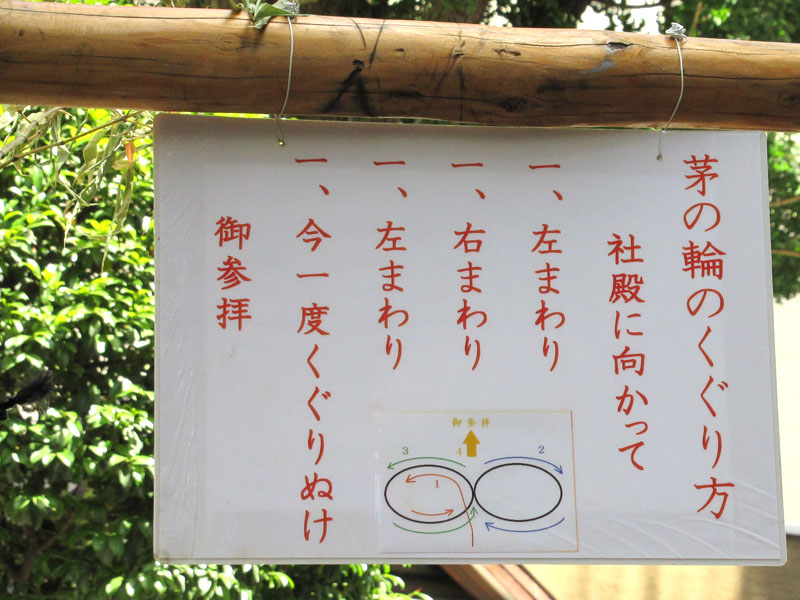 茅の輪のくぐり方
社殿に向かって
一、左まわり
一、右まわり
一、左まわり
一、今一度くぐりぬけ
御参拝
御参拝
4
3
2
1